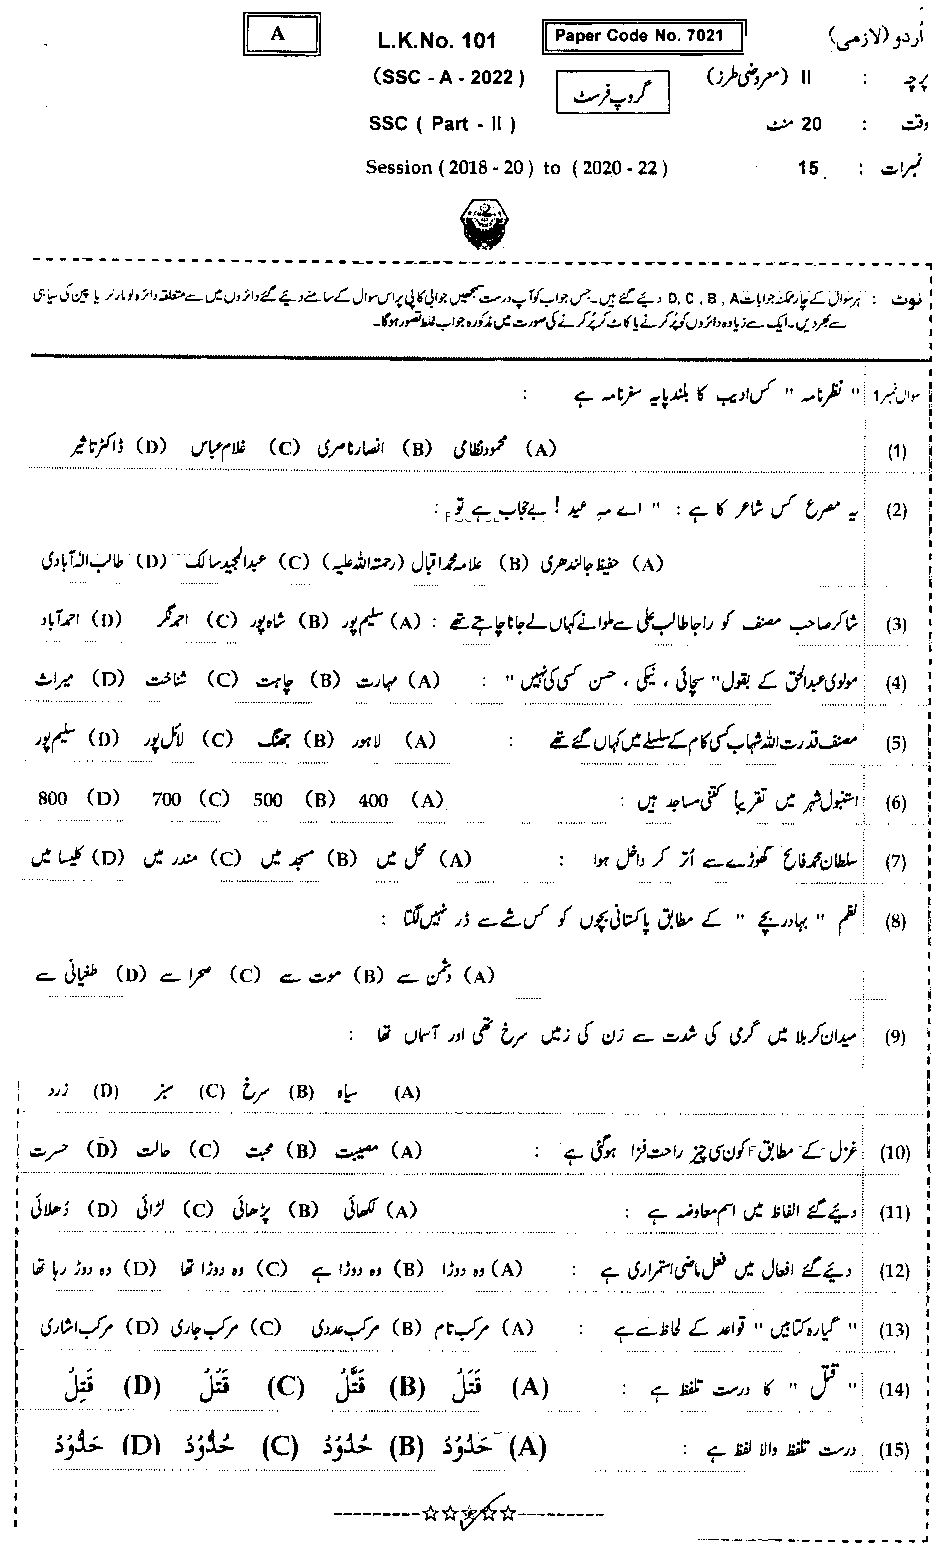 اُردو (لازمی) Paper Code No. 7021 L.K.No. 101 A
پرچہ : II (معروضی طرز) گروپ فرسٹ (SSC - A - 2022)
وقت : 20 منٹ SSC ( Part - II )
نمبرات : 15 Session ( 2018 - 20 ) to ( 2020 - 22 )
نوٹ : ہر سوال کے چار ممکنہ جوابات D, C , B , A دیئے گئے ہیں۔ جس جواب کو آپ درست سمجھیں جوابی کاپی پر اس سوال کے سامنے دیئے گئے دائروں میں سے متعلقہ دائرہ کو مارکر یا پین کی سیاہی
سے بھر دیں۔ ایک سے زیادہ دائروں کو پُر کرنے یا کاٹ کر پُر کرنے کی صورت میں مذکورہ جواب غلط تصور ہوگا۔
سوال نمبر 1 " نظرنامہ " کس ادیب کا بلند پایہ سفرنامہ ہے :
(1) (A) محمود نظامی (B) انصار ناصری (C) غلام عباس (D) ڈاکٹر تاثیر
(2) یہ مصرع کس شاعر کا ہے : " اے مہِ عید ! بے حجاب ہے تو :
(A) حفیظ جالندھری (B) علامہ محمد اقبال (رحمتہ اللہ علیہ) (C) عبدالمجید سالک (D) طالب الہ آبادی
(3) شاکر صاحب مصنف کو راجا طالب علی سے ملوانے کہاں لے جانا چاہتے تھے : (A) سلیم پور (B) شاہ پور (C) احمد نگر (D) احمد آباد
(4) مولوی عبدالحق کے بقول " سچائی ، نیکی ، حسن کسی کی نہیں " : (A) مہارت (B) چاہت (C) شناخت (D) میراث
(5) مصنف قدرت اللہ شہاب کسی کام کے سلسلے میں کہاں گئے تھے : (A) لاہور (B) جھنگ (C) لائل پور (D) سلیم پور
(6) استنبول شہر میں تقریباً کتنی مساجد ہیں : (A) 400 (B) 500 (C) 700 (D) 800
(7) سلطان محمد فاتح گھوڑے سے اُتر کر داخل ہوا : (A) محل میں (B) مسجد میں (C) مندر میں (D) کلیسا میں
(8) نظم " بہادر بچے " کے مطابق پاکستانی بچوں کو کس شے سے ڈر نہیں لگتا :
(A) دشمن سے (B) موت سے (C) صحرا سے (D) طغیانی سے
(9) میدان کربلا میں گرمی کی شدت سے رَن کی زمیں سرخ تھی اور آسماں تھا :
(A) سیاہ (B) سرخ (C) سبز (D) زرد
(10) غزل کے مطابق کون سی چیز راحت فزا ہوگئی ہے : (A) مصیبت (B) محبت (C) حالت (D) حسرت
(11) دیئے گئے الفاظ میں اسم معاوضہ ہے : (A) لکھائی (B) پڑھائی (C) لڑائی (D) دُھلائی
(12) دیئے گئے افعال میں فعل ماضی استمراری ہے : (A) وہ دوڑا (B) وہ دوڑا ہے (C) وہ دوڑا تھا (D) وہ دوڑ رہا تھا
(13) " گیارہ کتابیں " قواعد کے لحاظ سے ہے : (A) مرکب تام (B) مرکب عددی (C) مرکب جاری (D) مرکب اشاری
(14) " قتل " کا درست تلفظ ہے : (A) قَتَلُ (B) قَتَّلُ (C) قَتُلُ (D) قَتِلُ
(15) درست تلفظ والا لفظ ہے : (A) حَدُوُدُ (B) حُدُوُدُ (C) حُدُّوُدُ (D) حَدُّوُدُ